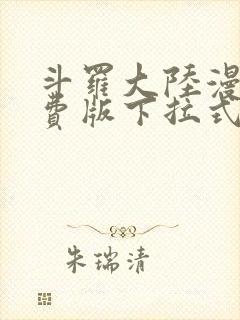 斗羅大陸漫
費版下拉式
朱瑞清